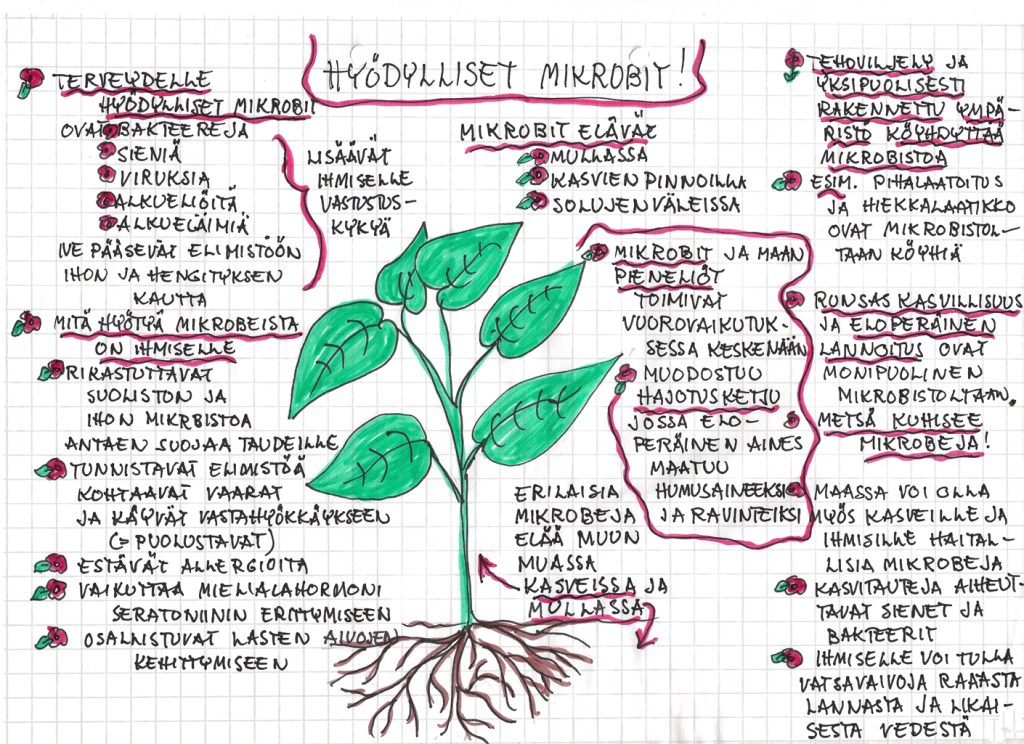 HYÖDYLLISET MIKROBIT!
TERVEYDELLE
HYÖDYLLISET MIKROBIT
OVAT BAKTEEREJA
SIENIÄ
VIRUKSIA
ALKUELIÖITÄ
ALKUELÄIMIÄ
NE PÄÄSEVÄT ELIMISTÖÖN
IHON JA HENGITYKSEN
KAUTTA
LISÄÄVÄT
IHMISELLE
VASTUSTUS-
KYKYÄ
MITÄ HYÖTYÄ MIKROBEISTA
ON IHMISELLE
RIKASTUTTAVAT
SUOLISTON JA
IHON MIKRBISTOA
ANTAEN SUOJAA TAUDEILLE
TUNNISTAVAT ELIMISTÖÄ
KOHTAAVAT VAARAT
JA KÄYVÄT VASTAHYÖKKÄYKSEEN
(= PUOLUSTAVAT)
ESTÄVÄT ALLERGIOITA
VAIKUTTAA MIELIALAHORMONI
SERATONIININ ERITTYMISEEN
OSALLISTUVAT LASTEN AIVOJEN
KEHITTYMISEEN
MIKROBIT ELÄVÄT
MULLASSA
KASVIEN PINNOILLA
SOLUJEN VÄLEISSÄ
MIKROBIT JA MAAN
PIENELIÖT
TOIMIVAT
VUOROVAIKUTUK-
SESSA KESKENÄÄN
MUODOSTUU
HAJOTUSKETJU
JOSSA ELO-
PERÄINEN AINES
MAATUU
HUMUSAINEEKSI
JA RAVINTEIKSI
ERILAISIA
MIKROBEJA
ELÄÄ MUUN
MUASSA
KASVEISSA JA
MULLASSA
TEHOVILJELY JA
YKSIPUOLISESTI
RAKENNETTU YMPÄ-
RISTÖ KÖYHDYTTÄÄ
MIKROBISTOA
ESIM. PIHALAATOITUS
JA HIEKKALAATIKKO
OVAT MIKROBISTOL-
TAAN KÖYHIÄ
RUNSAS KASVILLISUUS
JA ELOPERÄINEN
LANNOITUS OVAT
MONIPUOLINEN
MIKROBISTOLTAAN.
METSÄ KUHISEE
MIKROBEJA!
MAASSA VOI OLLA
MYÖS KASVEILLE JA
IHMISILLE HAITAL-
LISIA MIKROBEJA
KASVITAUTEJA AIHEUT-
TAVAT SIENET JA
BAKTEERIT
IHMISELLE VOI TULLA
VATSAVAIVOJA RAAASTA
LANNASTA JA LIKAI-
SESTA VEDESTÄ